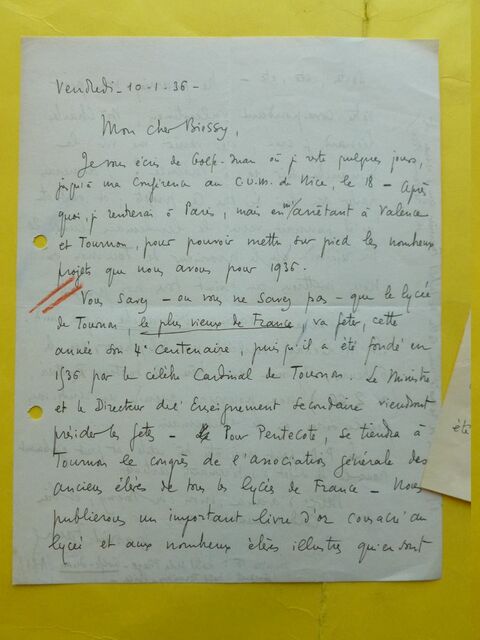 Vendredi - 10-1-36 -
Mon cher Biossy,
Je vous écris de Golfe-Juan où je reste quelques jours,
jusqu'à ma Conférence au C.U.M. de Nice, le 18 - Après
quoi, je rentrerai à Paris, mais en m'arrêtant à Valence
et Tournon, pour pouvoir mettre sur pied les nombreux
projets que nous avons pour 1936.
Vous savez - ou vous ne savez pas - que le lycée
de Tournon, le plus vieux de France, va fêter, cette
année son 4e Centenaire, puisqu'il a été fondé en
1536 par le célèbre Cardinal de Tournon. Le Ministre
et le Directeur de l'Enseignement Secondaire viendront
présider les fêtes - Pour Pentecôte, se tiendra à
Tournon le congrès de l'association générale des
anciens élèves de tous les lycées de France - Nous
publierons un important livre d'or consacré au
lycée et aux nombreux élèves illustres qui en sont
été